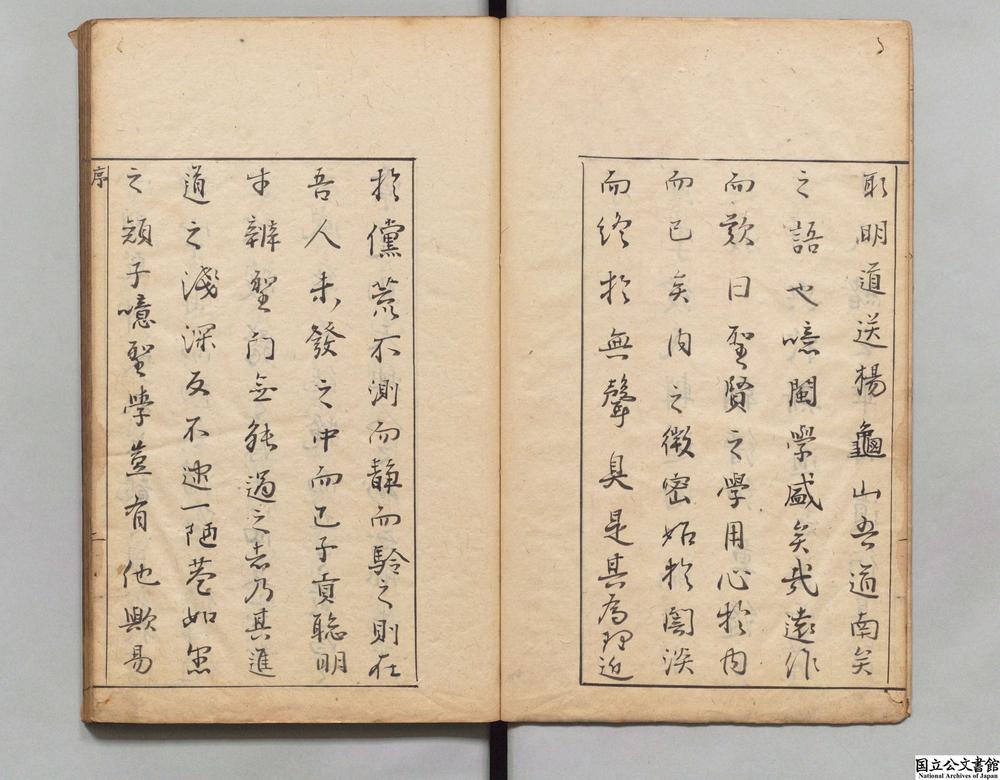 取明道送楊龜山吾道南矣
之語也噫閩學盛矣哉遠作
而歎曰聖賢之學用心於內
而已矣內之微密始於闇淡
而終於無聲臭是其為理近
於儻荒不測而靜而驗之則在
吾人未發之中而已子貢聰明
才辨聖門無能過之者乃其進
道之淺深反不逮一陋巷如愚
之顏子噫聖學豈有他歟易
序
国立公文書館
National Archives of Japan